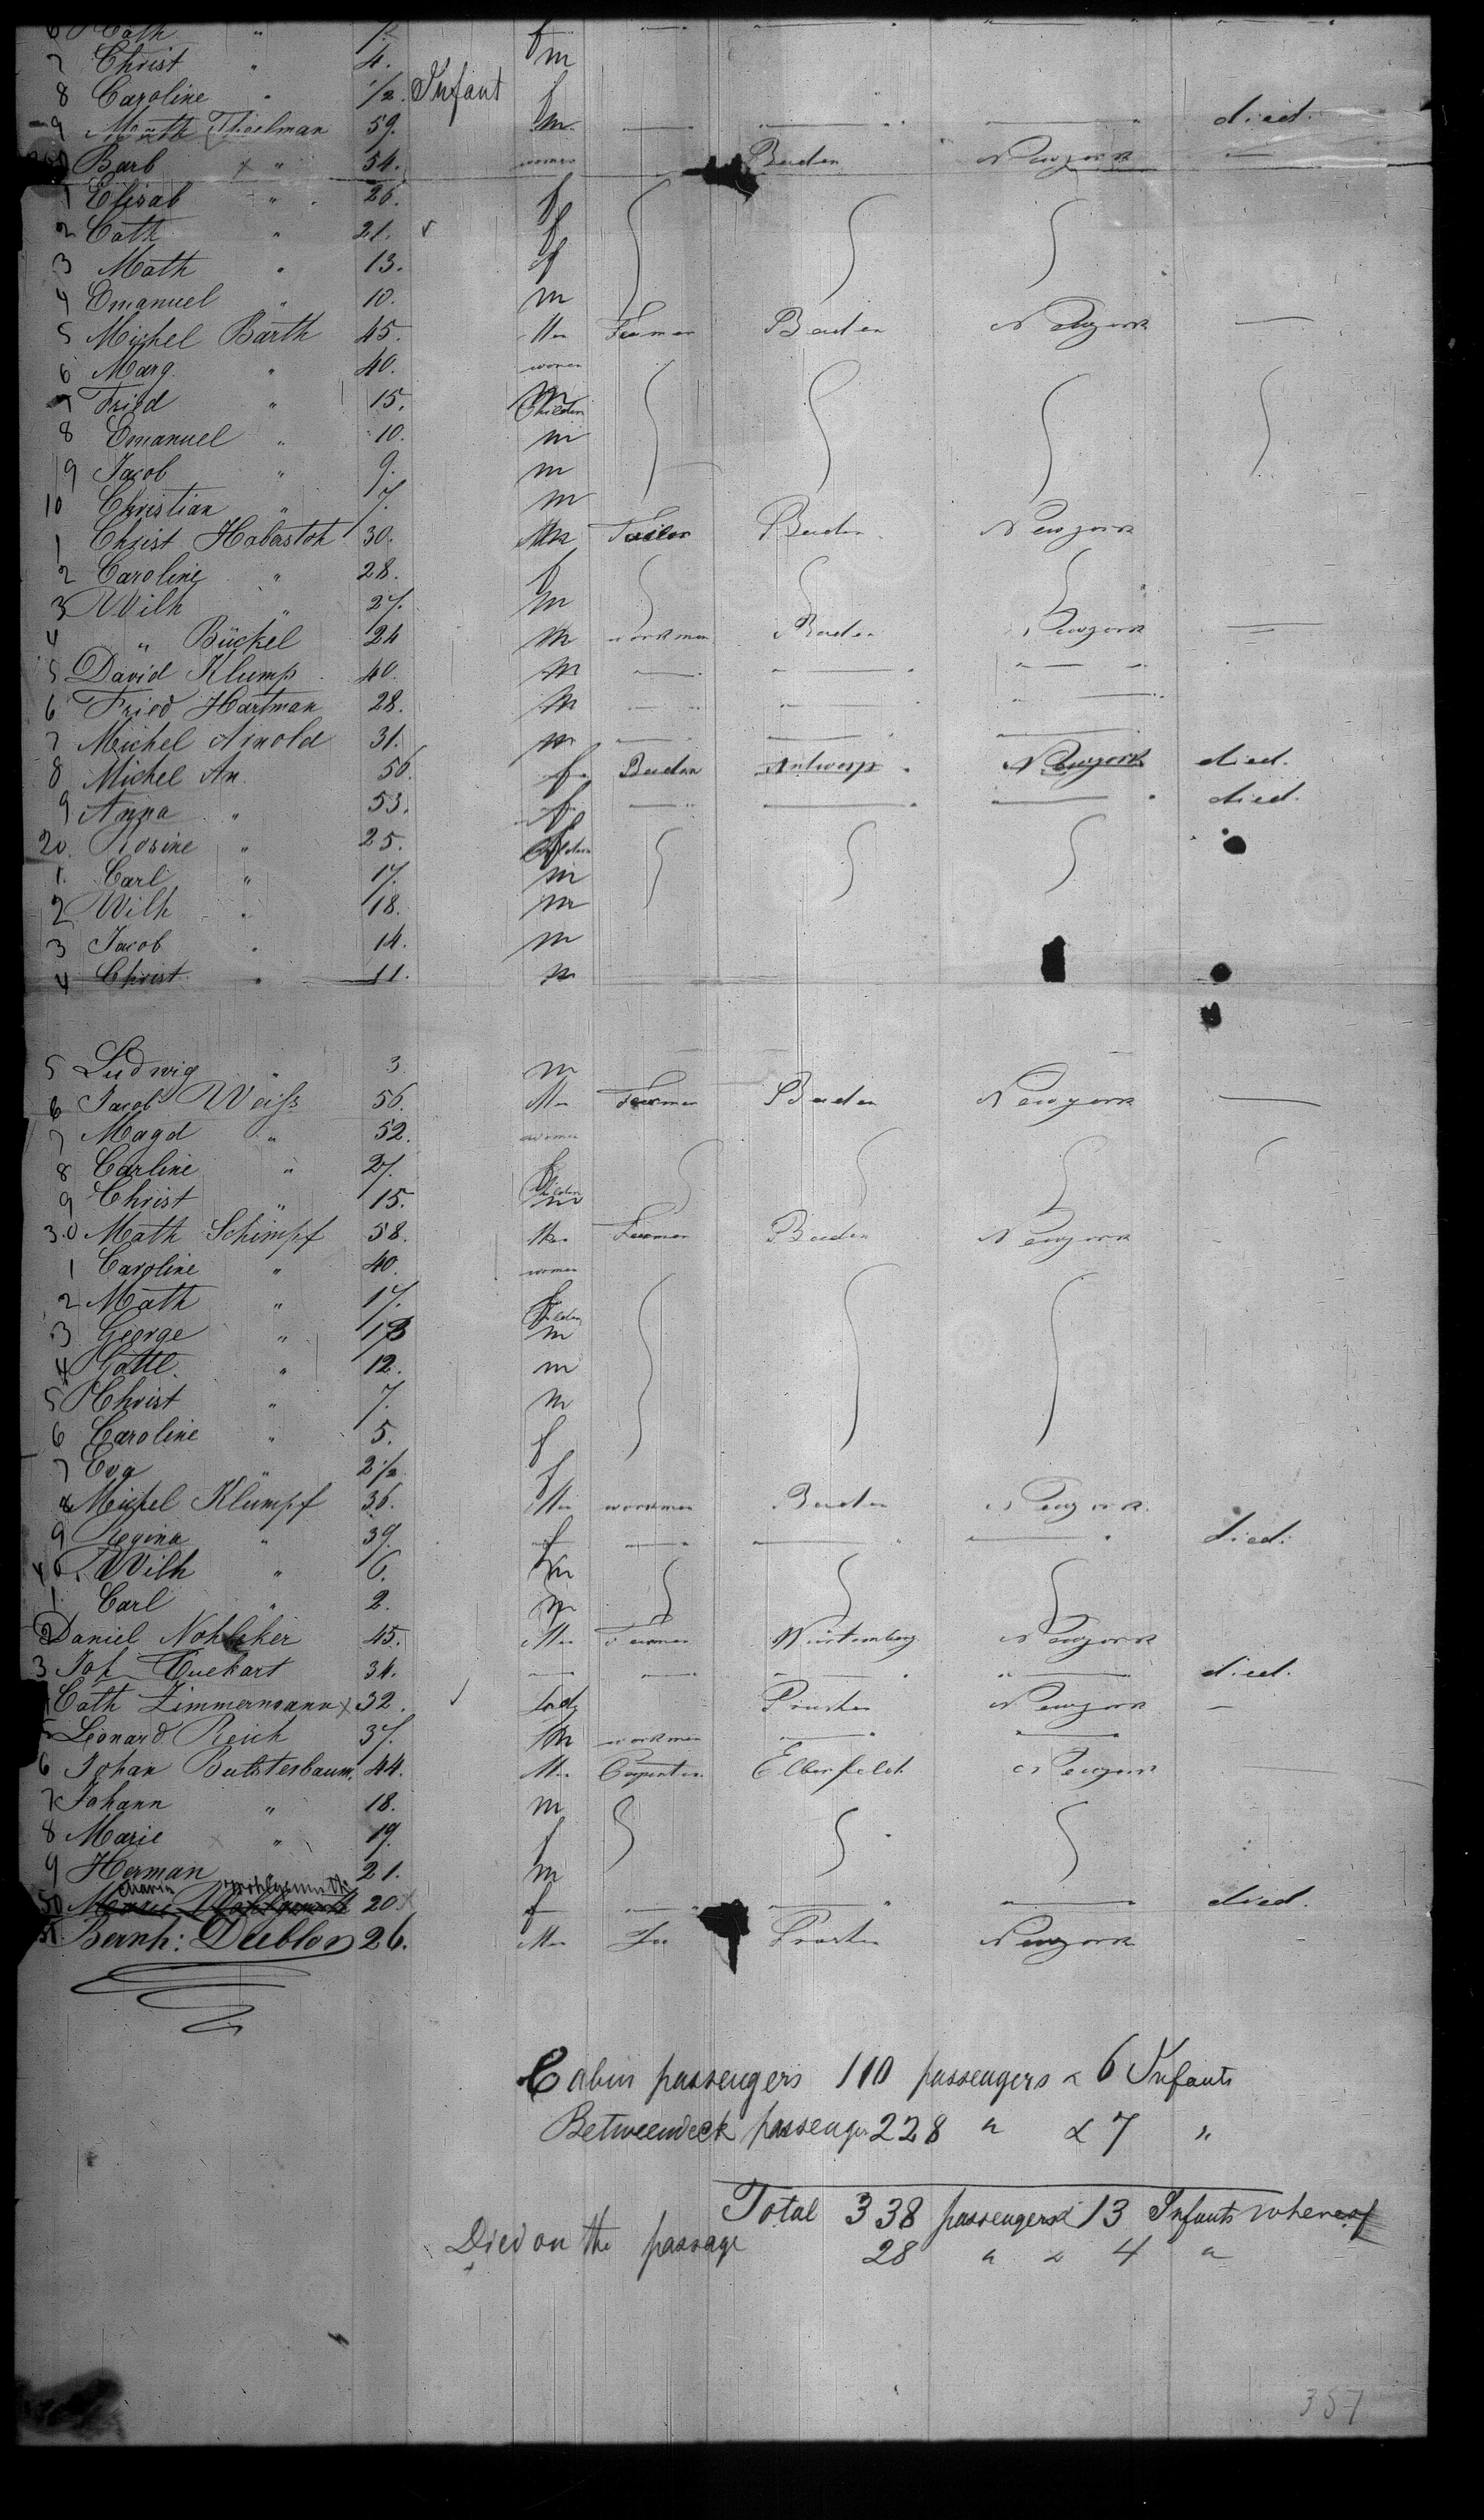 6 Cath "
7 Christ " 4. m
8 Caroline " 1/2. Infant f
9 Math Thoelman 59. m. died.
Barb " 54. women Baden Newyork
1 Elisab " 26. f
2 Cath " 21. f
3 Math " 13. f
4 Emanuel " 10. m
5 Michel Barth 45. Mn Farmer Baden Newyork
6 Marg. " 40. women
7 Fried " 15. m Children
8 Emanuel " 10. m
9 Jacob " 9. m
10 Christian " 7. m
1 Christ Haberstoh 30. Mn Tailor Baden Newyork
2 Caroline " 28. f
3 Wilh " 27. m
4 " Bückel 24 m workman Baden Newyork
5 David Klump 40. m
6 Fried Hartman 28. m
7 Michel Arnold 31. m
8 Michel An. 56. Baden Antwerp Newyork died.
9 Anna " 53. f died.
20. Rosine " 25. f Children
1. Carl " 17. m
2 Wilh " 18. m
3 Jacob " 14. m
4 Christ " 11. m
5 Ludwig " 3 m
6 Jacob Weiss 56. Mn Farmer Baden Newyork
7 Magd " 52. women
8 Carline " 27. f
9 Christ " 15. Children m
30 Math Schimpf 58. Mn Farmer Baden Newyork
1 Caroline " 40. women
2 Math " 17. f Children
3 George " 13 m
4 Gottl. " 12. m
5 Christ " 7. m
6 Caroline " 5. f
7 Eva " 2 1/2. f
8 Michel Klumpf 36. Mn workman Baden Newyork.
9 Regina " 39. f died.
40. Wilh " 6. m
1. Carl " 2. m
2 Daniel Nohleker 45. Mn Farmer Würtemberg Newyork
3 Joh 34. died.
Cath Zimmermann x 32. Lady Prusten Newyork
5 Leonard Reich 37. m workman
6 Johan Butsterbaum. 44. Mn Carpenter Elberfeld Newyork
7 Johann " 18. m
8 Marie " 19. f
9 Herman 21. m
Maria Wohlgemuth
50 Marie Wohlgemuth 20 f died.
51. Bernh: Deublon 26. Mn Prusten Newyork
Cabin passengers 110 passengers & 6 Infants
Betweendeck passenger 228 " & 7 "
Total 338 passengers & 13 Infants whereof
Died on the passage 28 " & 4 "
357